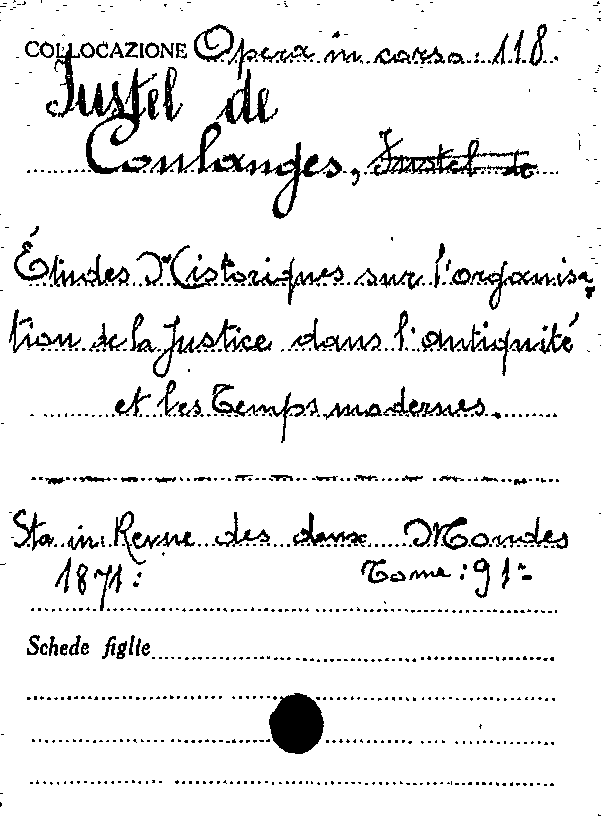 COLLOCAZIONE Opera in corso: 118.
Fustel de
Coulanges, Fustel de
Études Historiques sur l'organisa
tion de la Justice dans l'antiquité
et les Temps modernes.
Sta in Revue des deux Mondes
1871: Tome: 91-
Schede figlie